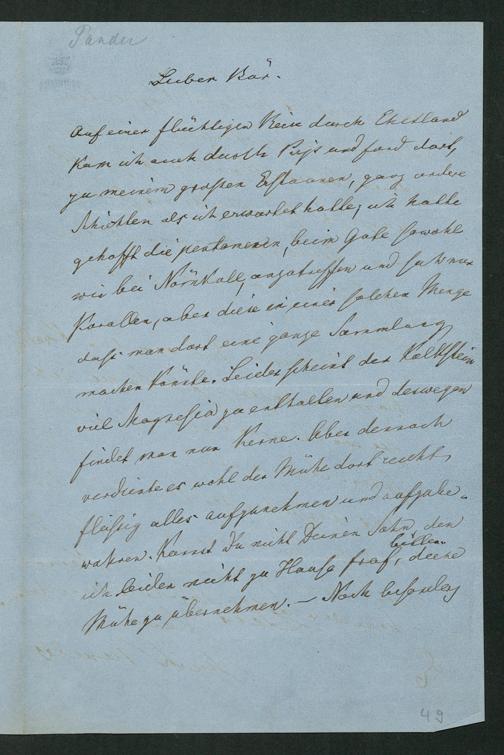 Pander
Lieber Bär.
Auf einer flüchtigen Reise durch Ehstland
kam ich auch durch und fand dort,
zu meinem grossen Erstaunen, ganz andere
Schichten als ich erwartet hatte; ich hatte
gehofft die beim Gute sowohl
wie bei anzutreffen und
Korallen, aber diese in einer solchen Menge
dass man dort eine ganze Sammlung
machen könnte. Leider scheint der Kalkstein
viel Magnesia zu enthalten und deswegen
findet man nur Kerne. Aber dennoch
verdiente es wohl der Mühe dort recht
fleissig alles aufzunehmen und aufzube-
wahren. Kannst Du nicht Deinen Sohn, den
ich leider nicht zu Hause traf, bitten diese
Mühe zu übernehmen. — Noch besonders
49